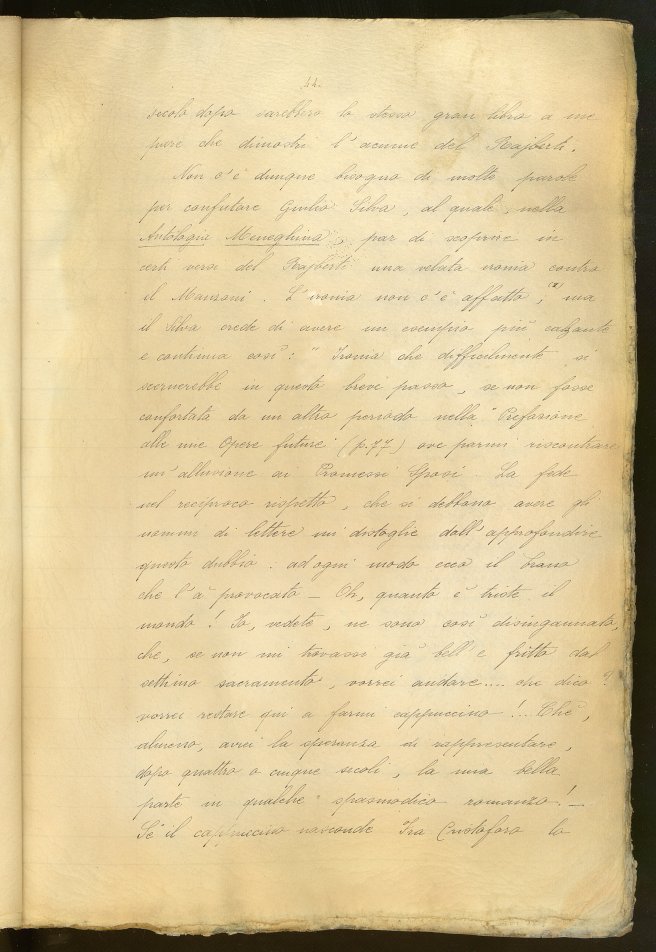 44.
secolo dopo sarebbero lo stesso gran libro a me
pare che dimostri l'acume del Rajberti.
Non c'è dunque bisogno di molte parole
per confutare Giulio Silva, al quale, nella
Antologia Meneghina, par di scoprire in
certi versi del Rajberti una velata ironia contro
il Manzoni. L'ironia non c'è affatto, (x) ma
il Silva crede di avere un esempio più calzante
e continua così: "Ironia che difficilmente si
scernerebbe in questo breve passo, se non fosse
confortata da un altro periodo nella "Prefazione
alle mie Opere future" (p. 77) ove parmi riscontrare
un'allusione ai Promessi Sposi. La fede
nel reciproco rispetto, che si debbono avere gli
uomini di lettere mi distoglie dall'approfondire
questo dubbio: ad ogni modo ecco il brano
che l'à provocato – Oh, quanto è triste il
mondo! Io, vedete, ne sono così disingannato,
che, se non mi trovassi già bell'e fritto dal
settimo sacramento, vorrei andare.... che dico?
vorrei restare qui a farmi cappuccino!... Chè,
almeno, avrei la speranza di rappresentare,
dopo quattro o cinque secoli, la mia bella
parte in qualche spasmodico romanzo! –
Se il cappuccino nasconde Fra Cristoforo lo